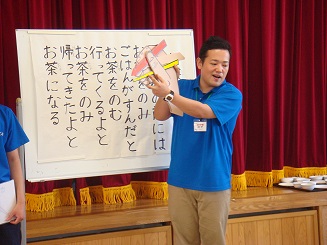 には
お茶をのみ
ごはんがすんだと
お茶をのむ
行ってくるよと
お茶をのみ
帰ってきたよと
お茶になる